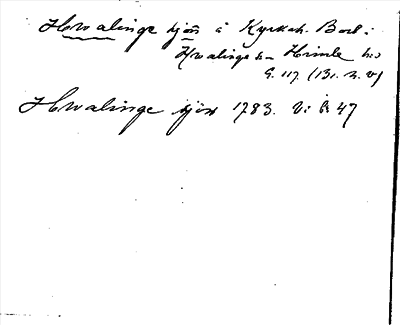 Hwalinge sjön å Kyrkoh. Bord:
Hwalinge s– Himle hd
G. 117. (131. 2. v)
Hwalinge sjön 1783. V: Å 47